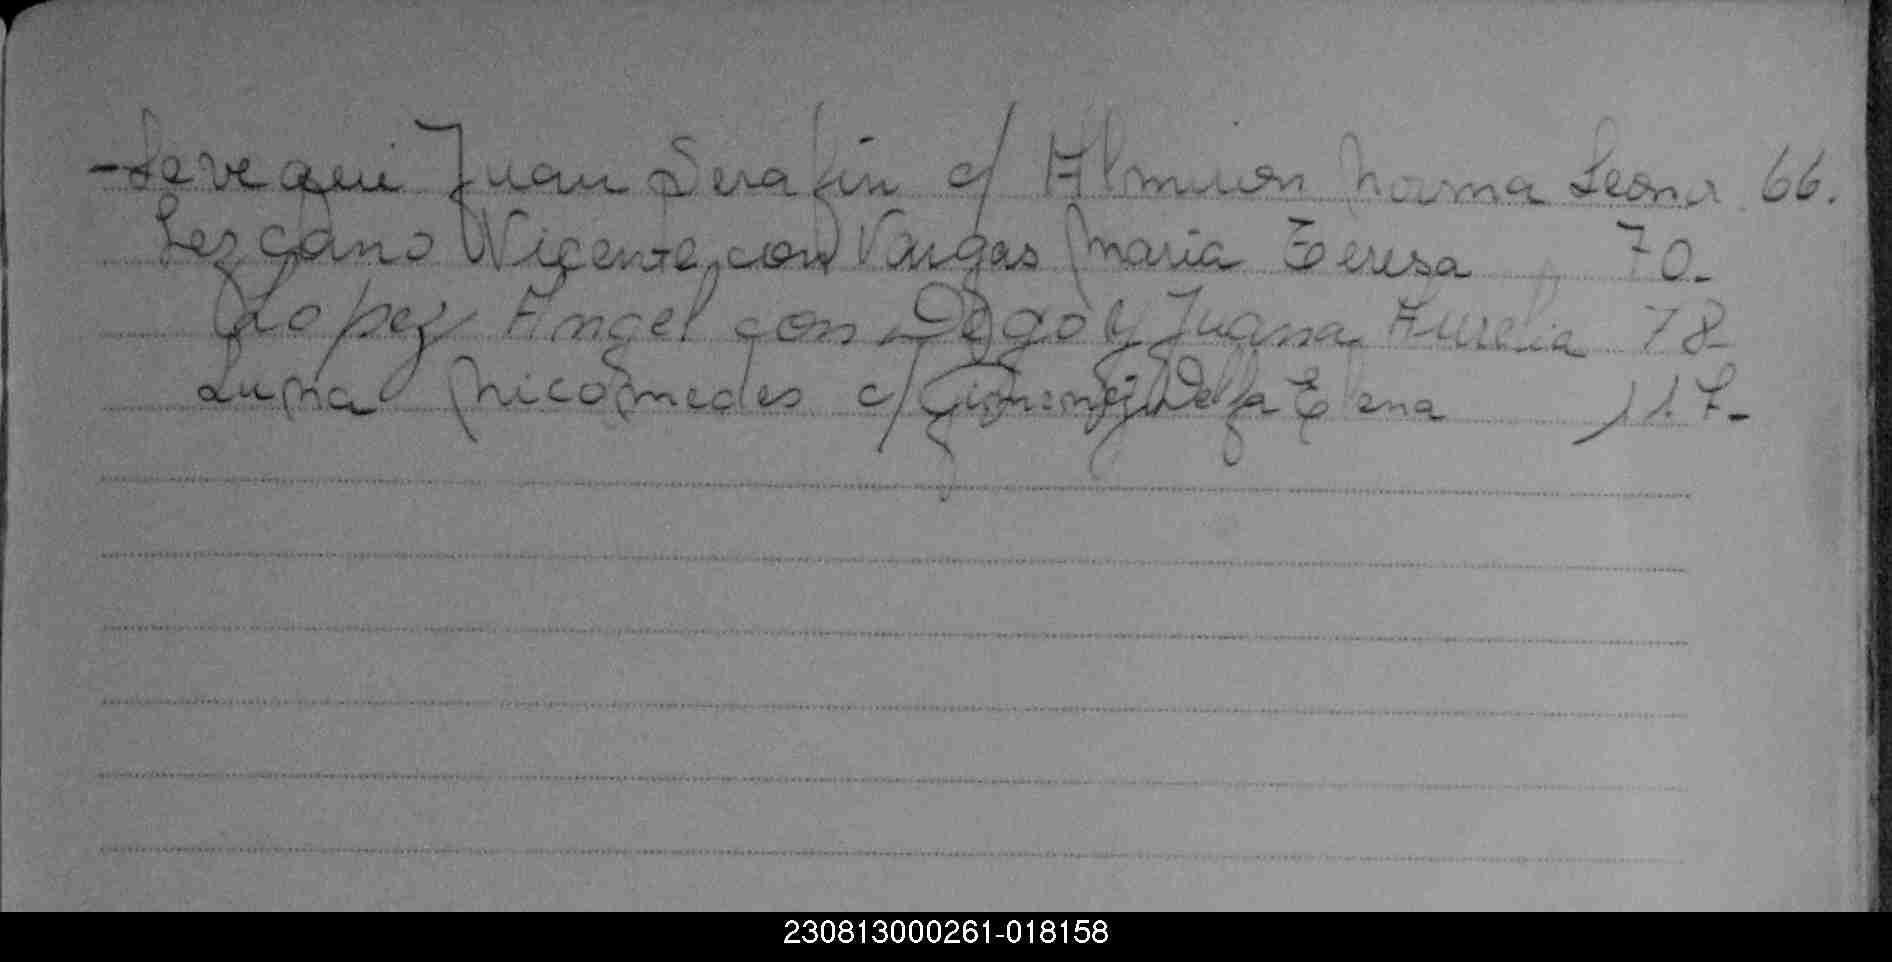 - Leveque Juan Serafin c/ Almiron Norma Leonor 66.
Lezcano Vicente con Vargas Maria Teresa 70.-
Lopez Angel con Juana Aurelia 78
Luna Nicomedes c/ Gimenez Delfa Elena 117.-
230813000261-018158